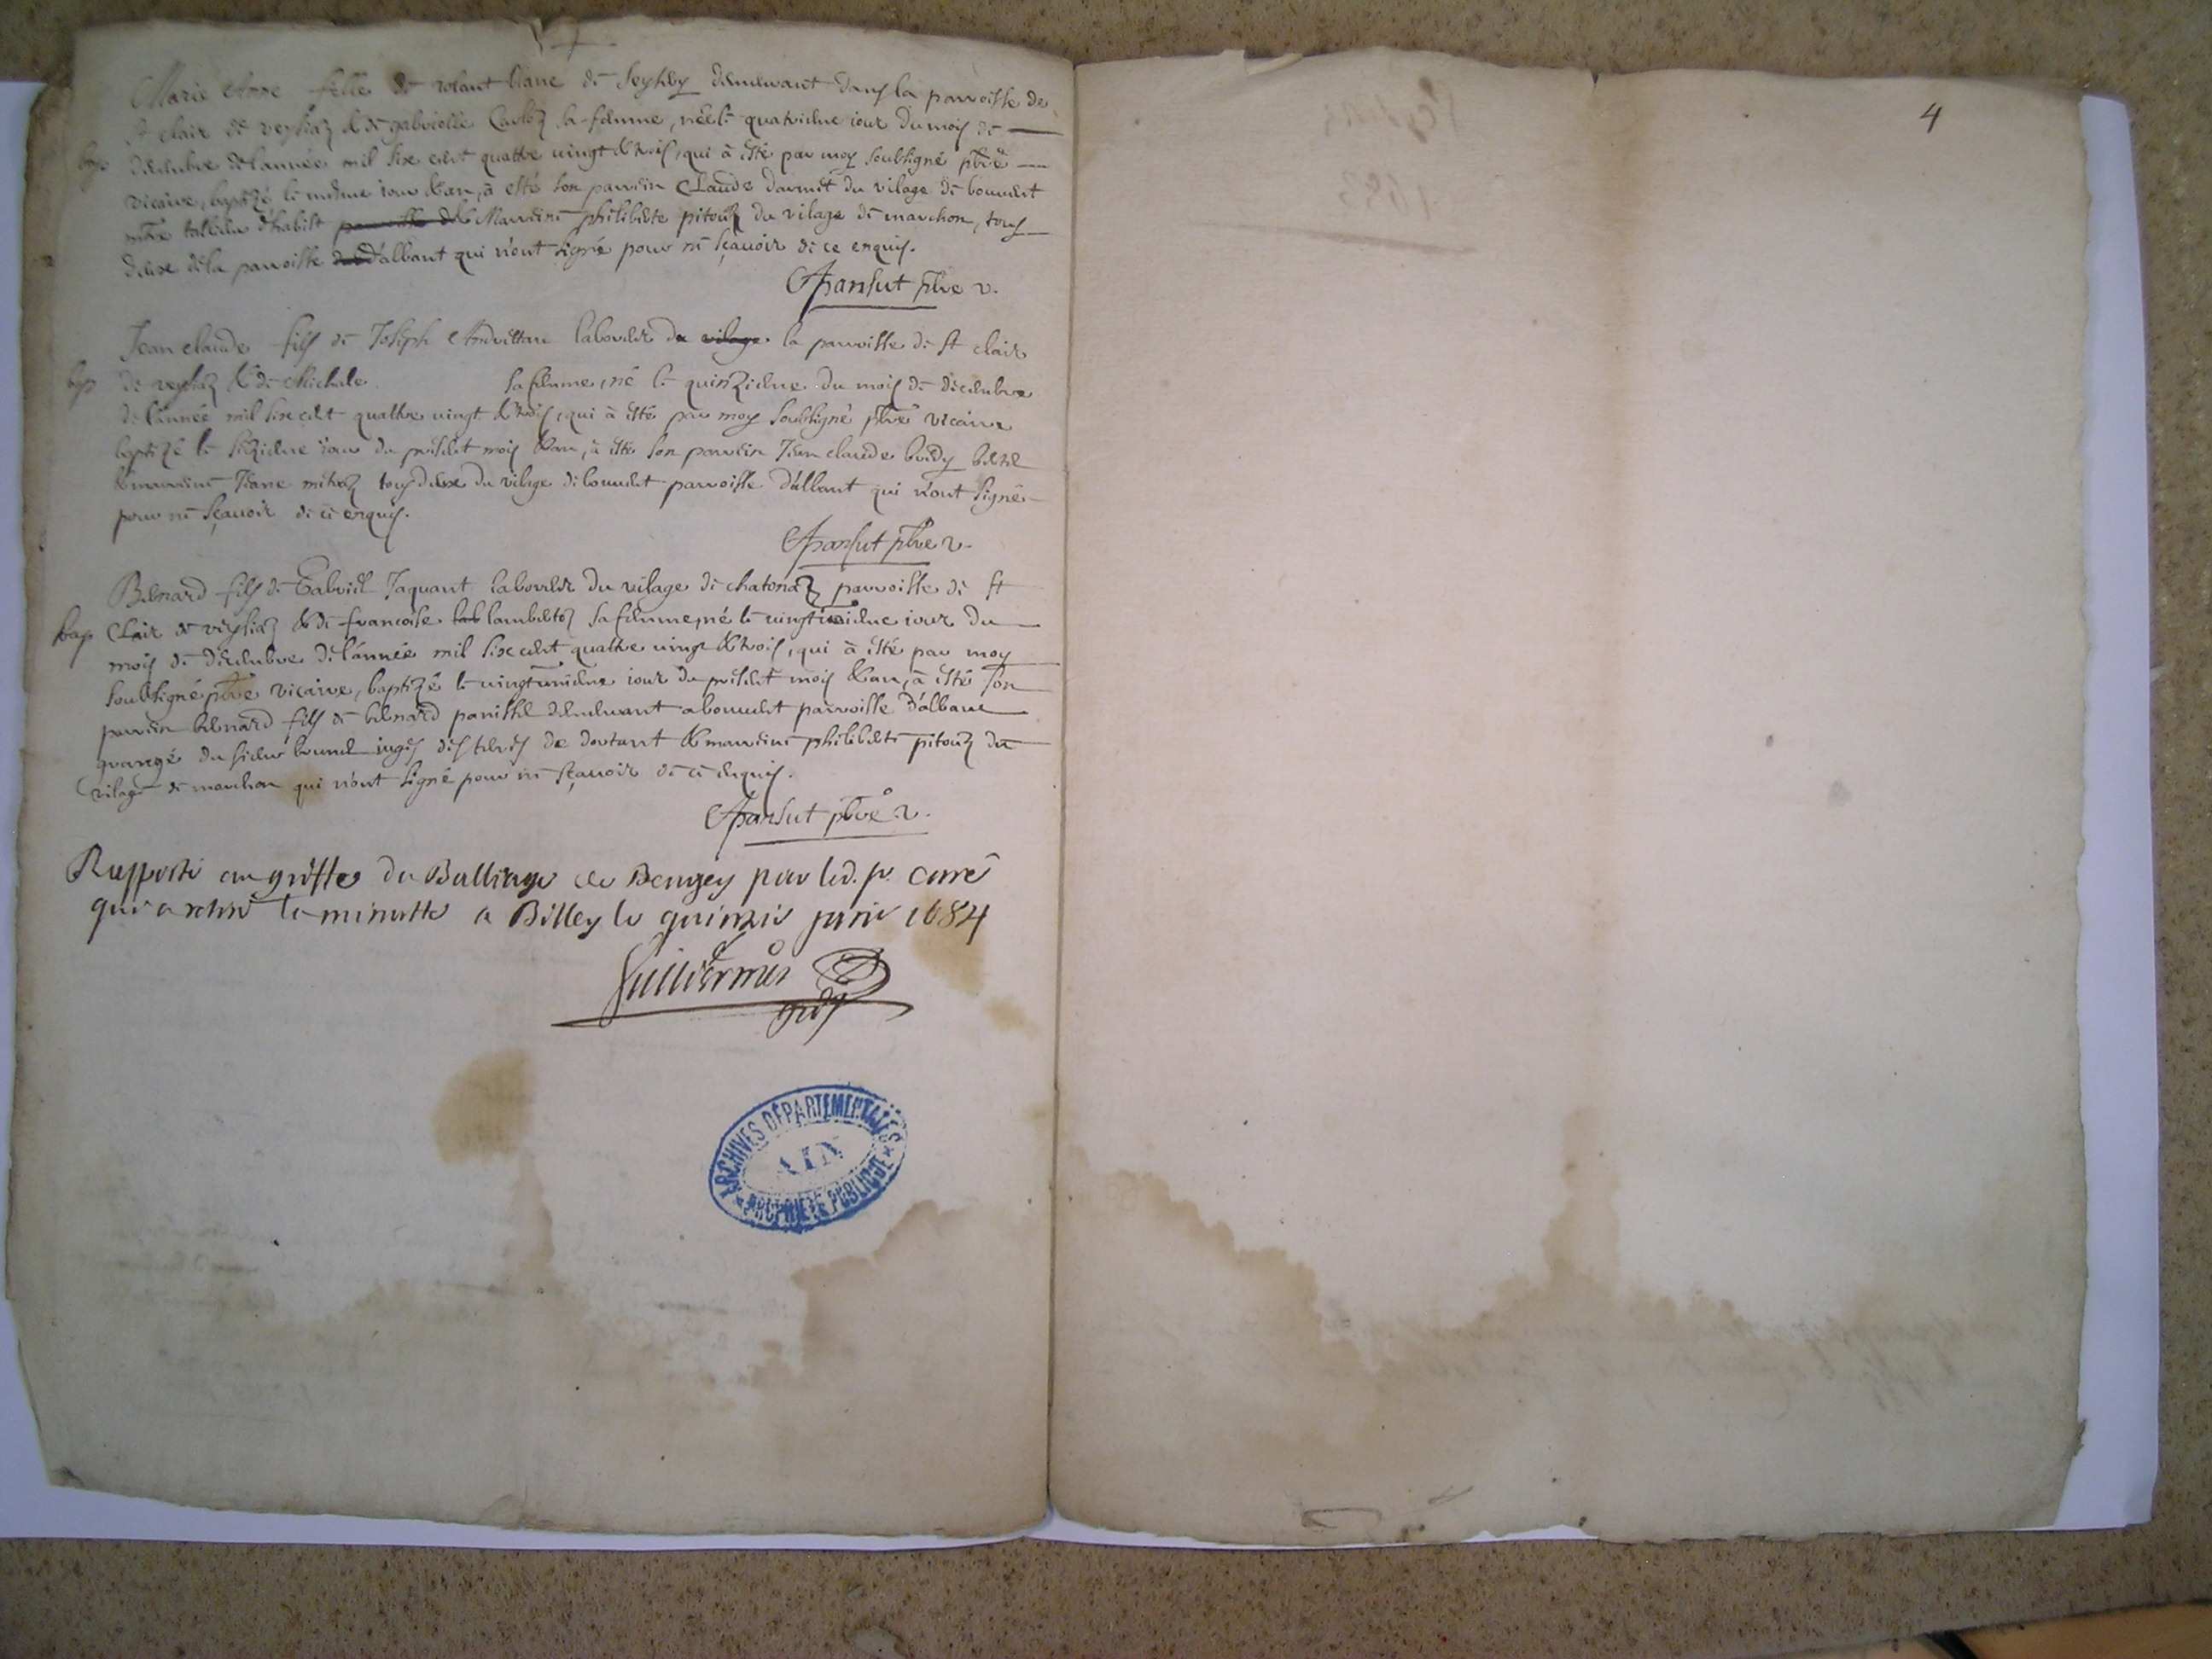 Marie Anne fille de rolant liane de Seyhby demeurant dans la parroisse de
st clair de veysiaz & de gabrielle Carloz sa femme, née le quatrieme iour du mois de
bap decembre de l'année mil six cent quattre vingt & trois, qui à esté par moy soubsigné pbre
vicaire, baptizé le mesme iour & an, à esté son parrin Claude darmet du vilage de bouuent
mtre d'habist parroisse de & Marreine philiberte pitouz du vilage de marchon, tous
deux de la parroisse d'albant qui n'ont signé pour ne sçauoir de ce enquis.
Apansut pbre v.
Jean claude fils de Joseph laboureur du vilage la parroisse de st clair
bap de veysiaz & de Michele sa femme, né le quinzieme du mois de decembre
de l'année mil six cent quattre vingt & trois, qui à esté par moy soubsigné pbre vicaire
baptizé le sezieme iour du present mois & an, à esté son parrein Jean claude
& marreine Jeane tous deux du vilage de bouuent parroisse d'albant qui n'ont signé
pour ne sçauoir de ce enquis.
Apansut pbre v.
Bernard fils de Gabriel Jaquant laboureur du vilage de chatonaz parroisse de st
bap Clair de veysiaz & de francoise lambertoz sa femme, né le iour du
mois de decembre de l'année mil six cent quattre vingt & trois, qui à esté par moy
soubsigné pbre vicaire, baptizé le vingtunieme iour du present mois & an, à esté son
parrin bernard fils de bernard panisset demeurant a bouuent parroisse d'albant
grangé du sieur brunel iuges des terres de dortant & marreine philiberte pitouz du
vilage de marchon qui n'ont signé pour ne sçauoir de ce enquis.
Apansut pbre v.
Rapporté au greffe du Balliage de Beugey par led. sr. curé
qui a retiré la minutte a Belley le quinzie janvie 1684
Guilliermin
greff
ARCHIVES DÉPARTEMENTALES
AIN
PROPRIÉTÉ PUBLIQUE
4